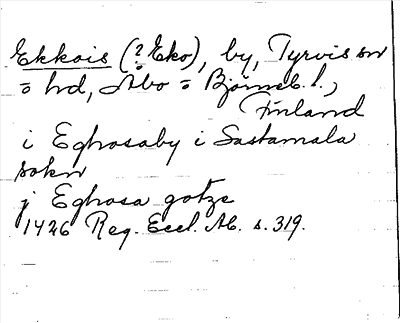 Ekkois (? Eko), by, Tyrvis sn
o hd, Åbo o Björneb. l.,
Finland
i Eghosaby i Sastamala
sokn
j Eghosa gotze
1426 Reg. Eccl. Ab. s. 319.